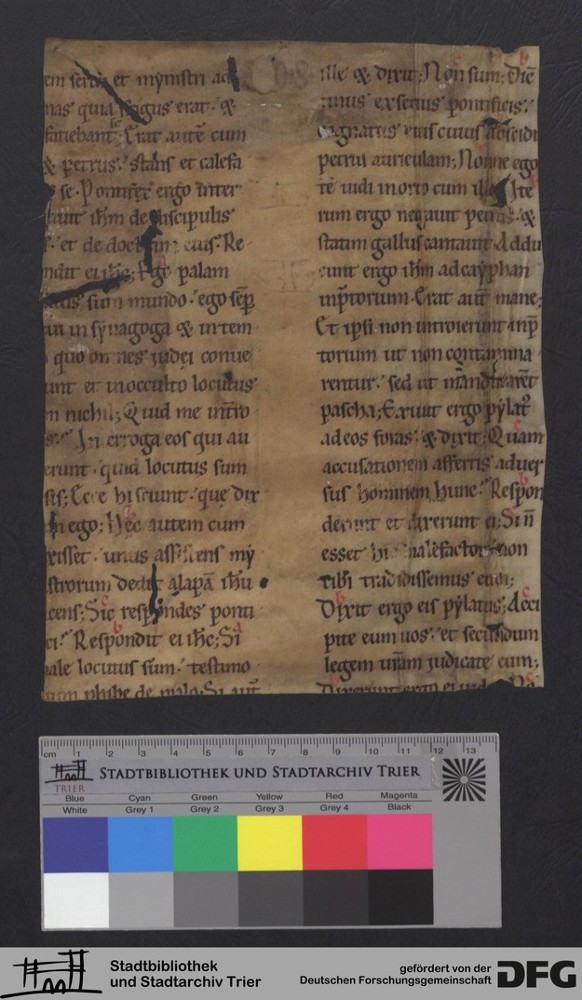 em serui et mynistri ad
nas quia frigus erat. &
faciebant; Erat autē cum
& petrus. stans et calefa
se. Pontifex ergo inter
gauit ihm de discipulis
et de doctrina eius. Re
ndit ei ihc; Ego palam
sum mundo. ego sēp
in synagoga & intem
quo omnes iudei conue
unt et inocculto locutus
m nichil; Quid me intro
s. Interroga eos qui au
erunt. quid locutus sum
sis; Ecce hi sciunt. que dix
ego; Hec autem cum
xisset. unus assistens my
strorum dedit alapā ihu
cens; Sic respondes ponti
ci. Respondit ei ihc; Si
male locutus sum. testimo
nium phibe de malo; Si aut
ille & dixit; Non sum; Dic
unus exseruis pontificis.
cognatus eius cuius abscidit
petrus auriculam; Nonne ego
te uidi inorto cum illo; Ite
rum ergo negauit petrus. &
statim gallus cantauit. Addu
cunt ergo ihm adcayphan
inp̄torium. Erat aut̄ mane;
Et ipsi non introierunt inp̄
torium ut non contamina
rentur. sed ut manducarēt
pascha; Exiuit ergo pylat9
adeos foras. & dixit; Quam
accusationem affertis aduer
sus hominem hunc. Respon
derunt et dixerunt ei; Si n̄
esset hic malefactor. non
tibi tradidissemus eum;
Dixit ergo eis pylatus; Acci
pite eum uos. et secundum
legem uram iudicate eum;
Dixerunt ergo ei iudei
cm 1 2 3 4 5 6 7 8 9 10 11 12 13
TRIER
STADTBIBLIOTHEK UND STADTARCHIV TRIER
Blue Cyan Green Yellow Red Magenta
White Grey 1 Grey 2 Grey 3 Grey 4 Black
Stadtbibliothek
und Stadtarchiv Trier
gefördert von der
Deutschen Forschungsgemeinschaft
DFG